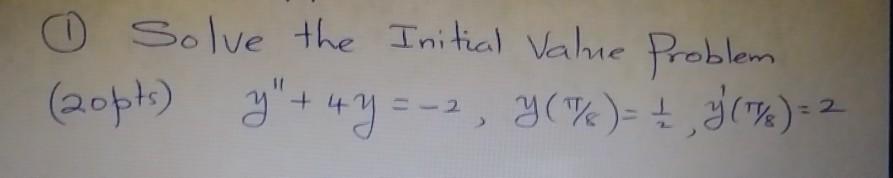 ① Solve the Initial Value Problem
(20pts) y" + 4y = -2, y(π/8) = 1/2, y'(π/8) = 2